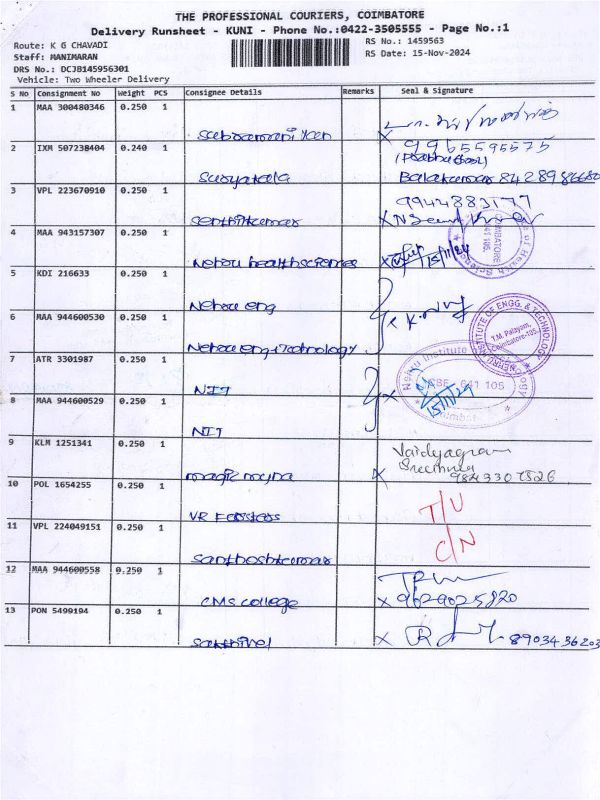 THE PROFESSIONAL COURIERS, COIMBATORE
Delivery Runsheet - KUNI - Phone No.:0422-3505555 - Page No.:1
Route: K G CHAVADI
RS No.: 1459563
Staff: MANIMARAN
RS Date: 15-Nov-2024
DRS No.: DCJB145956301
Vehicle: Two Wheeler Delivery
S No Consignment No Weight PCS Consignee Details Remarks Seal & Signature
1 MAA 300480346 0.250 1
2 IXM 507238404 0.240 1 9965595575
Suryakala Balakumar 8428986680
3 VPL 223670910 0.250 1 9944883177
Senthilkumar
4 MAA 943157307 0.250 1
Nehru health sciences 15/11/24
5 KDI 216633 0.250 1
Nehru eng
6 MAA 944600530 0.250 1
Nehru eng Technology
T.M. Palayam, Coimbatore-105
NEHRU INSTITUTE OF ENGG. & TECHNOLOGY
7 ATR 3301987 0.250 1
NIT
8 MAA 944600529 0.250 1
15/11/24
NIT
9 KLM 1251341 0.250 1 Vaidyagram
magic myna 9843307526
10 POL 1654255 0.250 1
T/U
11 VPL 224049151 0.250 1
C/N
Santhoshkumar
12 MAA 944600558 0.250 1
CMS college 9629025820
13 PON 5499194 0.250 1
Sakthivel 8903436203